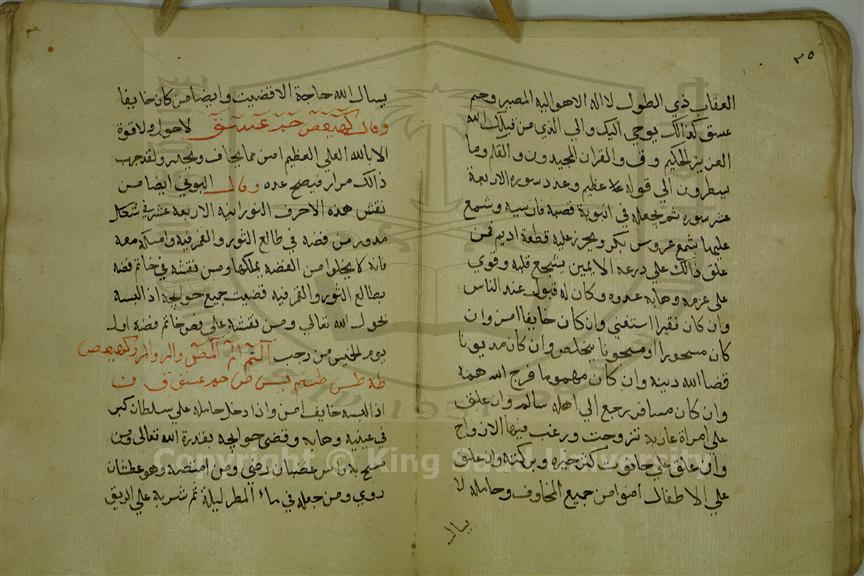 ٣٥
العقاب ذي الطول لا اله الا هو اليه المصير وحم
عسق كذالك يوحي اليك والي الذي من قبلك الله
العزيز الحكيم وق والقران المجيد ون والقلم وما
يسطرون الي قوله عظيم وعدد سورة الاربعة
عشر سوره ثم يجعله في انبوبة قصبة فارسيه وشمع
عليها بشمع عروس بكر ويخرز عليه قطعة اديم فمن
علق ذالك علي ذرعه الايمن يتشجع قلبه وقوي
علي عزمه وهابه عدوه وكان له قبول عند الناس
وان كان فقيرا استغني وان كان خايفا امن وان
كان مسحورا او مسجونا يتخلص وان كان مديونا
قضا الله دينه وان كان مهموما فرج الله همه
وان كان مسافر رجع الي اهله سالم وان علق
علي امراة عازبة تزوجت ورغب فيها الازواج
وان علق علي حانوت كثر خيره وبركته وان علق
علي الاطفال امنوا من جميع المخاوف وحامله لا
يسال
يسال الله حاجة الا قضيت وايضا من كان خايفا
وقال كهيعص حم عسق لاحول ولاقوة
الا بالله العلي العظيم امن مما يخاف ويحذر ولقد جرب
ذالك مرار فيصح عده وقال البوني ايضا من
نقش هذه الاحرف النورانيه الاربعة عشر في شكل
مدور من فضه في طالع الثور والقمر فيه وامسكه معه
فانه لا يخلوا من الفضه يملكها ومن نقشه في خاتم فضه
بطالع الثور والقمر فيه قضيت جميع حوايجه اذ البسه
بحول الله تعالي ومن نقشه علي فص خاتم فضة اول
يوم الخميس من رجب الم المص والر والمر وكهيعص
طه طس طسم يس ص حم عسق ق ن
اذ البسه خايف امن واذا دخل حامله علي سلطان كبر
في عينيه وهابه وقضي حوايجه بقدرة الله تعالي ومن
مسح به راس غضبان رضي ومن امتصه وهو عطشان
روي ومن جعله في ماء المطر ليلة ثم شربه علي الريق
Copyright © King Saud University
1957